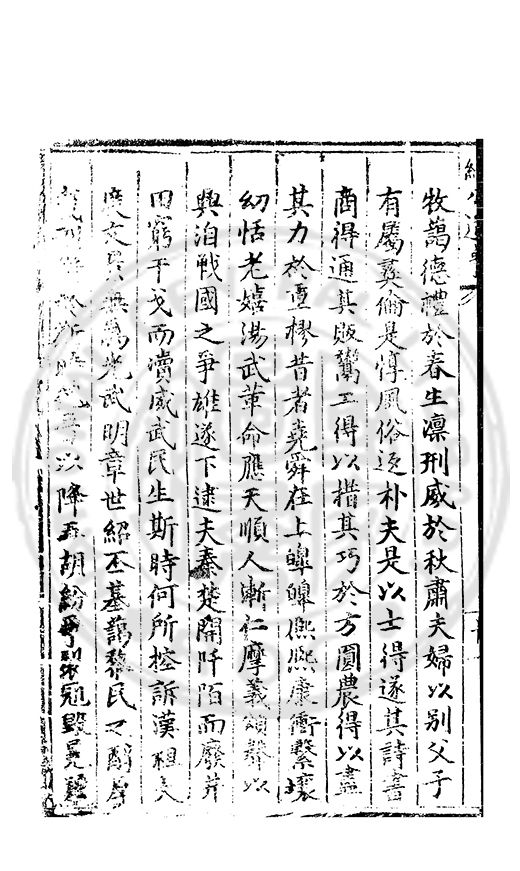 牧藹德禮於春生凛刑威於秋肅夫婦以別父子
有屬彜倫是惇風俗返朴夫是以士得遂其詩書
商得通其販鬻工得以措其巧於方圓農得以盡
其力於重穋昔者堯舜在上皥皥熈熈康衢擊壤
幼恬老嬉湯武革命應天順人漸仁摩義頌聲以
興洎戦國之爭雄遂下逮夫秦楚開阡陌而廢井
田窮干戈而瀆威武民生斯時何所控訴漢祖
文景無為光武明章世紹丕基藹黎民之醇
以降五胡紛爭裂冠毁冕